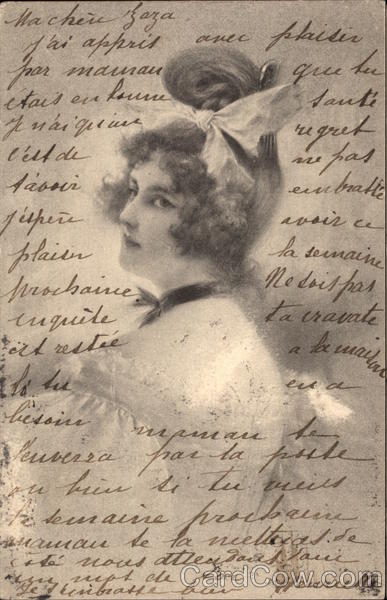 Ma chère Zaza
J'ai appris avec plaisir
par maman que tu
étais en bonne santé
Je n'ai qu'un regret
c'est de ne pas
t'avoir embrassé
j'espère avoir ce
plaisir la semaine
prochaine. Ne sois pas
inquiète ta cravate
est restée a la maison
si tu en a
besoin maman te
l'enverra par la poste
ou bien si tu viens
la semaine prochaine
maman te la mettras de
côté nous attendons
un mot de
Je t'embrasse bien
CardCow.com